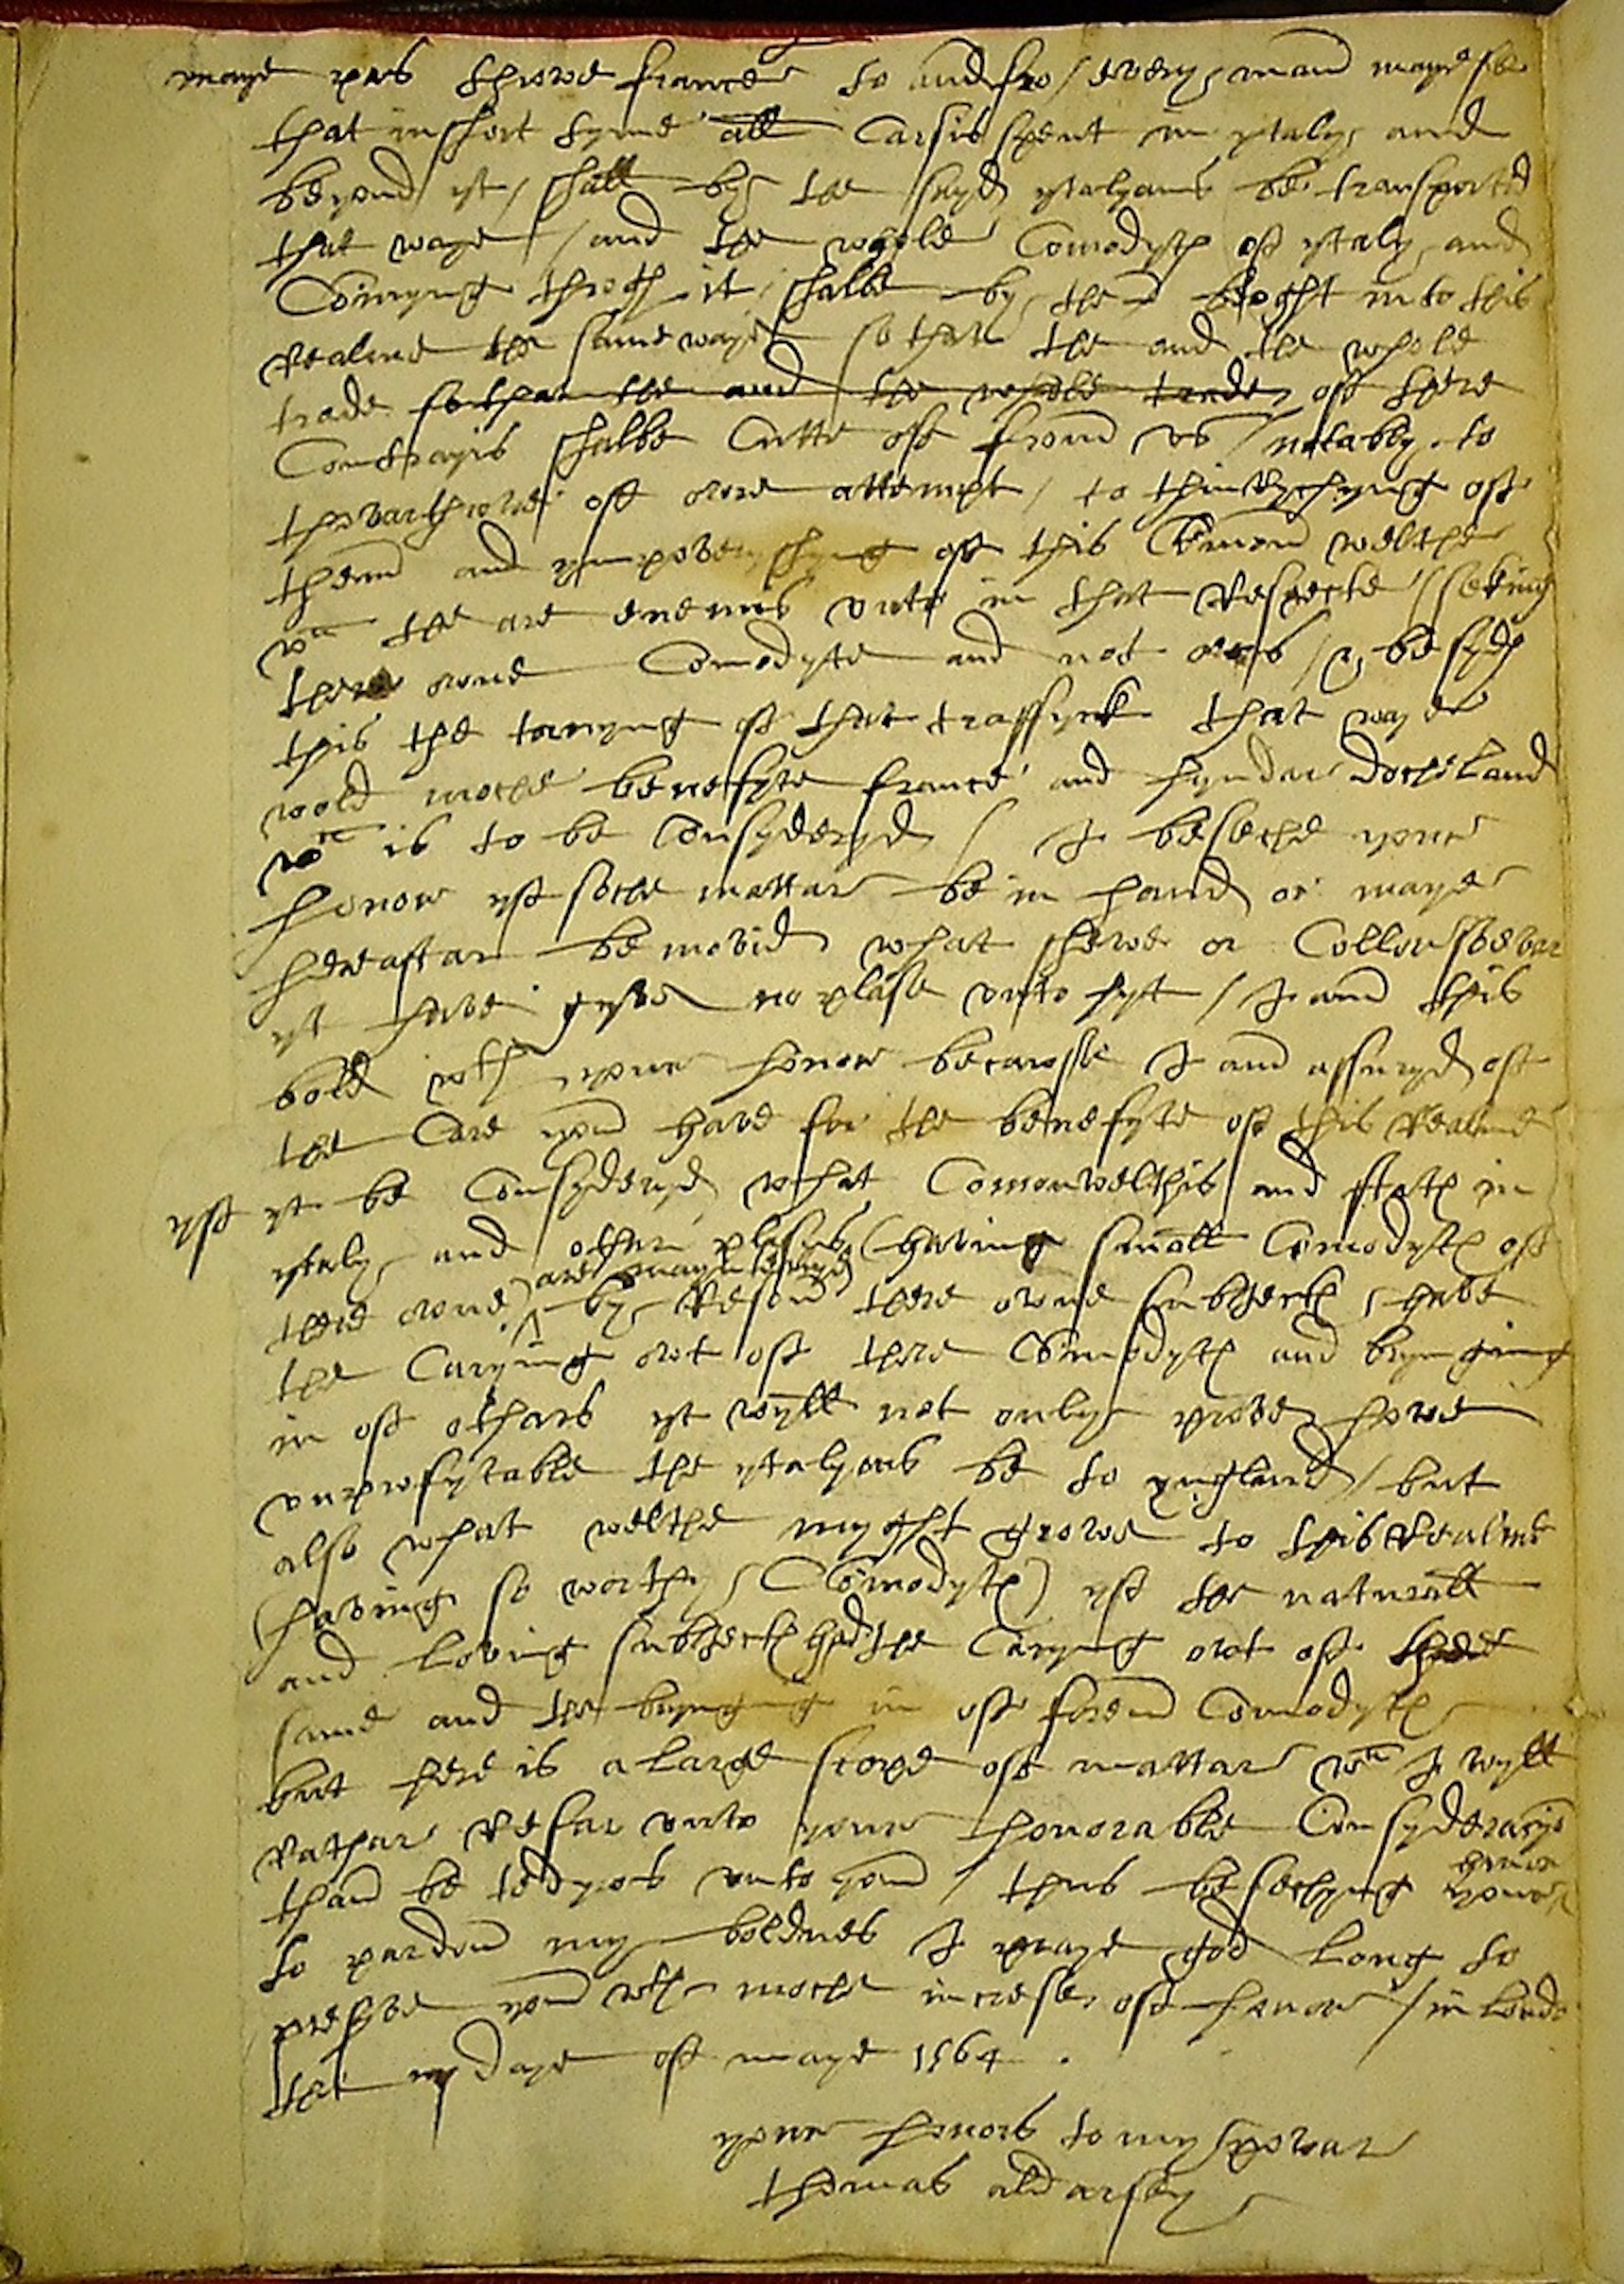 maye pas throwe france to and fro / every man maye se
that in short tyme all Carsis spent in ytaly and
beyond yt / shall by the sayd ytalyans be transported
that waye / and the whole Comodyte off ytaly and
Comyng throgh it shalbe by them broght into this
realme the same waye so that the and the whole
trade so that the and the whole trade off there
Contrayis shalbe Cutte off from us / notably to
thovarthrowe off owre attempt / to thinrychyng off
them and ympoveryshyng off this Comon welthe
wch the are enemis unto in that respecte / seking
there owne Comodyte and not owrs / & besyde
this the tornyng off that traffyck that waye
wold moche benefyte france and hyndar docheland
wch is to be Consyderyd / I beseche your
honor yff soche mattar be in hand or maye
hereaftar be movid what shewe or Collour soevar
yt have gyve no plase unto hyt / I am this
bold wth your honor becawsse I am assuryd off
the Care you have for the benefyte off this realme
yff yt be Consyderyd what Comonwelthis and state in
ytaly and other plasis (having small Comodyte off
are mayntenyd
there owne) by reson there owne subjects have
the Caryeng owt off there Comodyte and bryngeing
in off othars yt wyll not only prove howe
unprofytable the ytalyans be to yngland / but
also what welthe myght growe to this realme
(having so worthy Comodyte) yff the naturall
and loving subjects had the Caryeng owt off the
same and the bryngyng in off foren Comodyte
but here is a large scope off mattar wch I wyll
rathar refar unto your honorable Consyderacyo
than be tedyos unto you / thus besechyng your
honor
to pardon my boldnes I praye god long to
presyve you wth moche increse off honor / in londo
the daye off maye 1564 .
your honors to my powar
thomas aldarsey